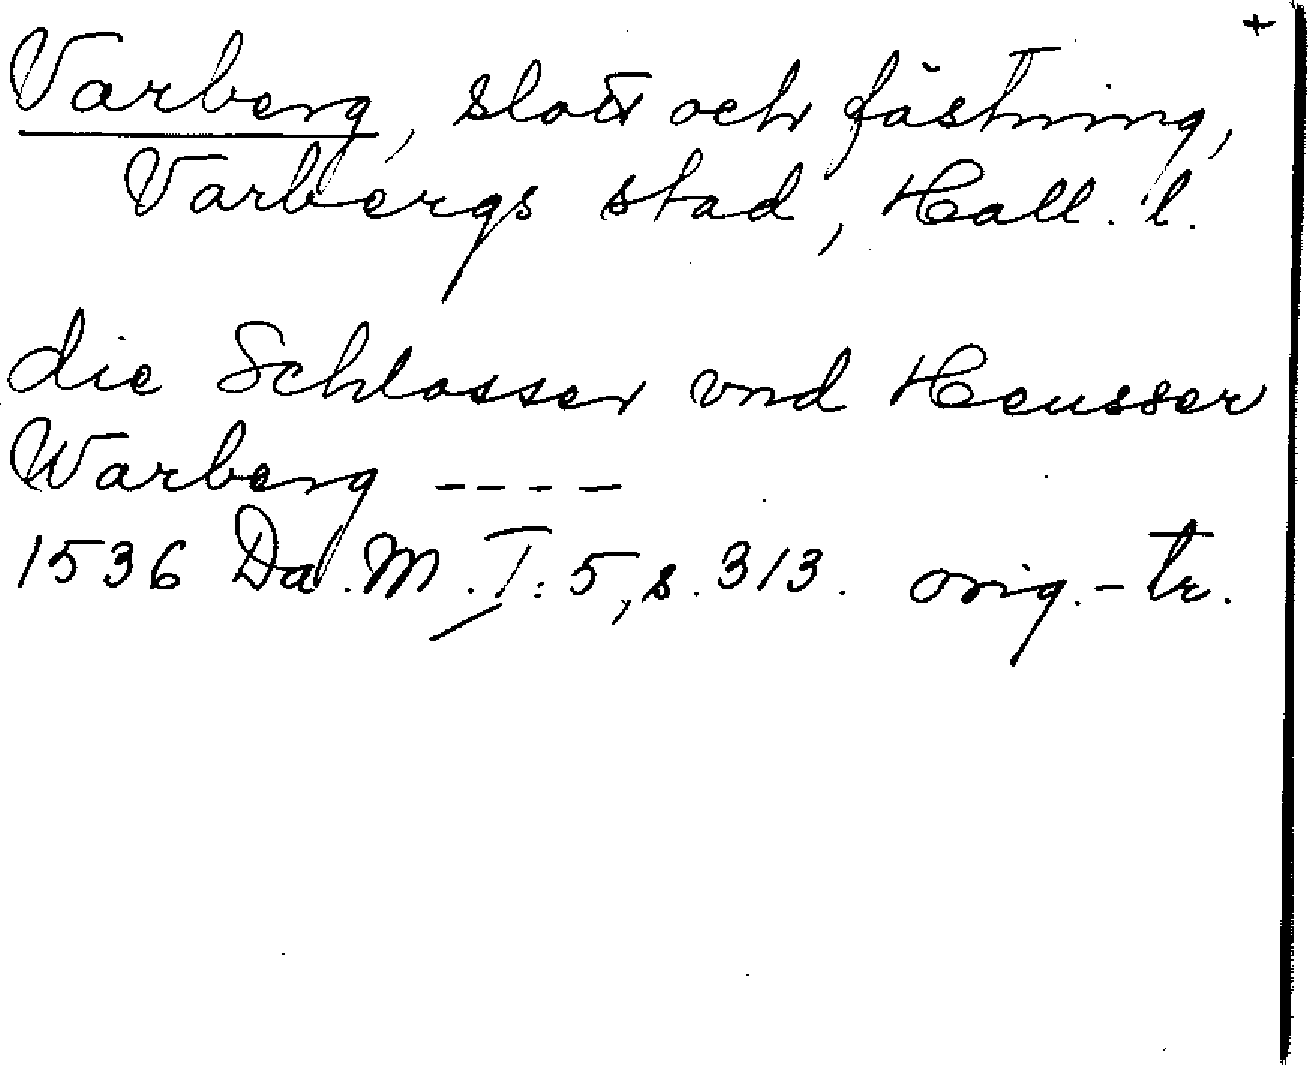 +
Varberg, slott och fästning,
Varbergs stad, Hall. l.
die Schlosser vnd Heusser
Warberg ----
1536 Da. M. I: 5, s. 313. orig.-tr.